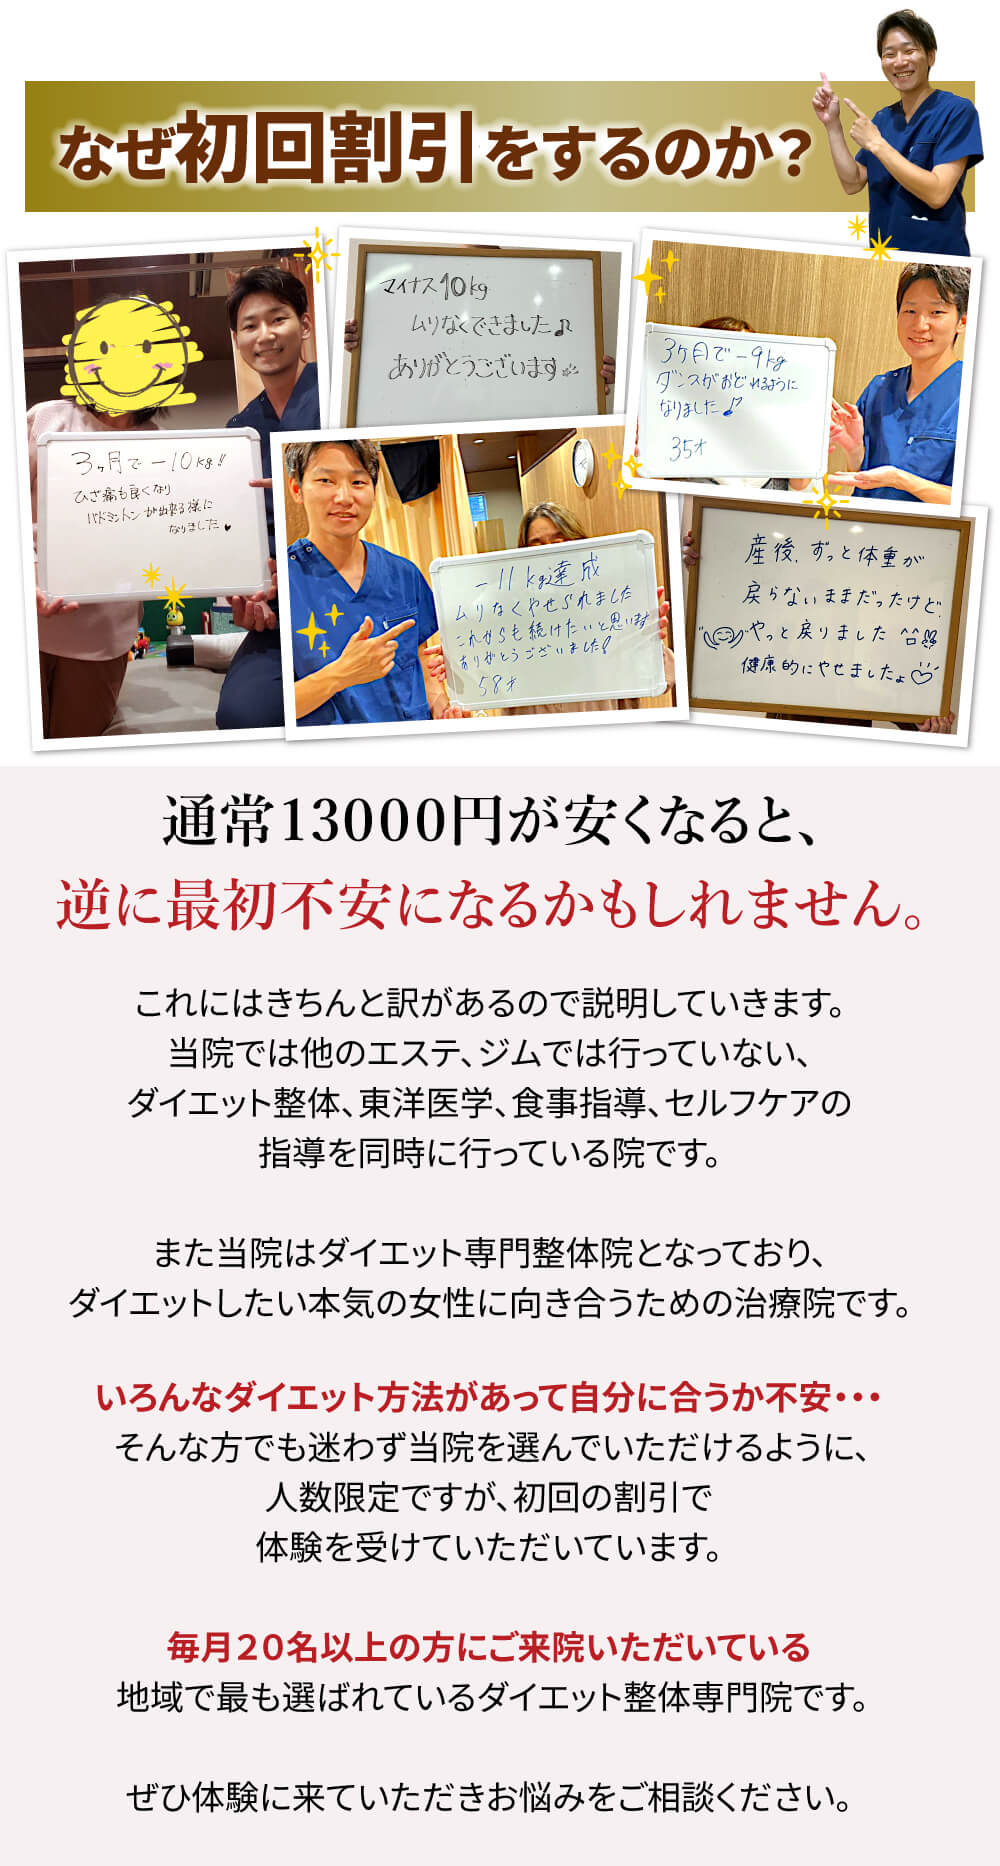 なぜ初回割引をするのか？
3ヶ月で－10kg!!
ひざ痛も良くなり
バドミントンが出来る様に
なりました♥
マイナス10kg
ムリなくできました♪
ありがとうございます
3ヶ月で－9kg
ダンスがおどれるように
なりました♪
35才
－11kg達成
ムリなくやせられました
これからも続けたいと思います
ありがとうございました!
58才
産後、ずっと体重が
戻らないままだったけど、
やっと戻りました
健康的にやせましたょ♡
通常13000円が安くなると、
逆に最初不安になるかもしれません。
これにはきちんと訳があるので説明していきます。
当院では他のエステ、ジムでは行っていない、
ダイエット整体、東洋医学、食事指導、セルフケアの
指導を同時に行っている院です。
また当院はダイエット専門整体院となっており、
ダイエットしたい本気の女性に向き合うための治療院です。
いろんなダイエット方法があって自分に合うか不安・・・
そんな方でも迷わず当院を選んでいただけるように、
人数限定ですが、初回の割引で
体験を受けていただいています。
毎月２０名以上の方にご来院いただいている
地域で最も選ばれているダイエット整体専門院です。
ぜひ体験に来ていただきお悩みをご相談ください。